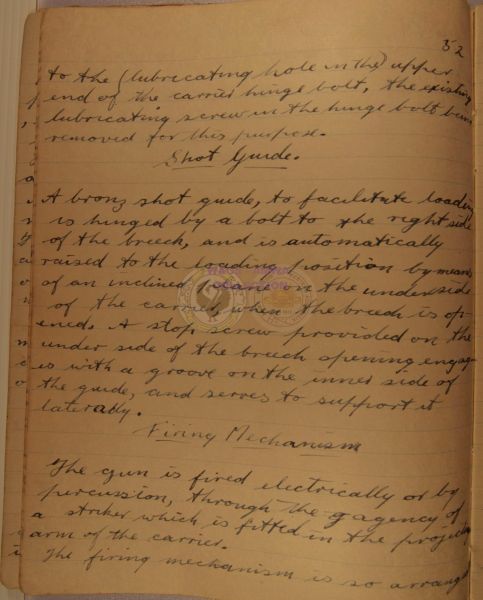 52
to the (lubricating hole in the) upper
end of the carrier hinge bolt, the existing
lubricating screw in the hinge bolt being
removed for this purpose.
Shot Guide.
A bronz shot guide, to facilitate loading
is hinged by a bolt to the right side
of the breech, and is automatically
raised to the loading position by means
of an inclined plane on the underside
of the carrier when the breech is op-
ened. A stop screw provided on the
under side of the breech opening engag-
es with a groove on the inner side of
the guide, and serves to support it
laterally.
Firing Mechanism
The gun is fired electrically or by
percussion, through the agency of
a striker which is fitted in the projecting
arm of the carrier.
The firing mechanism is so arranged